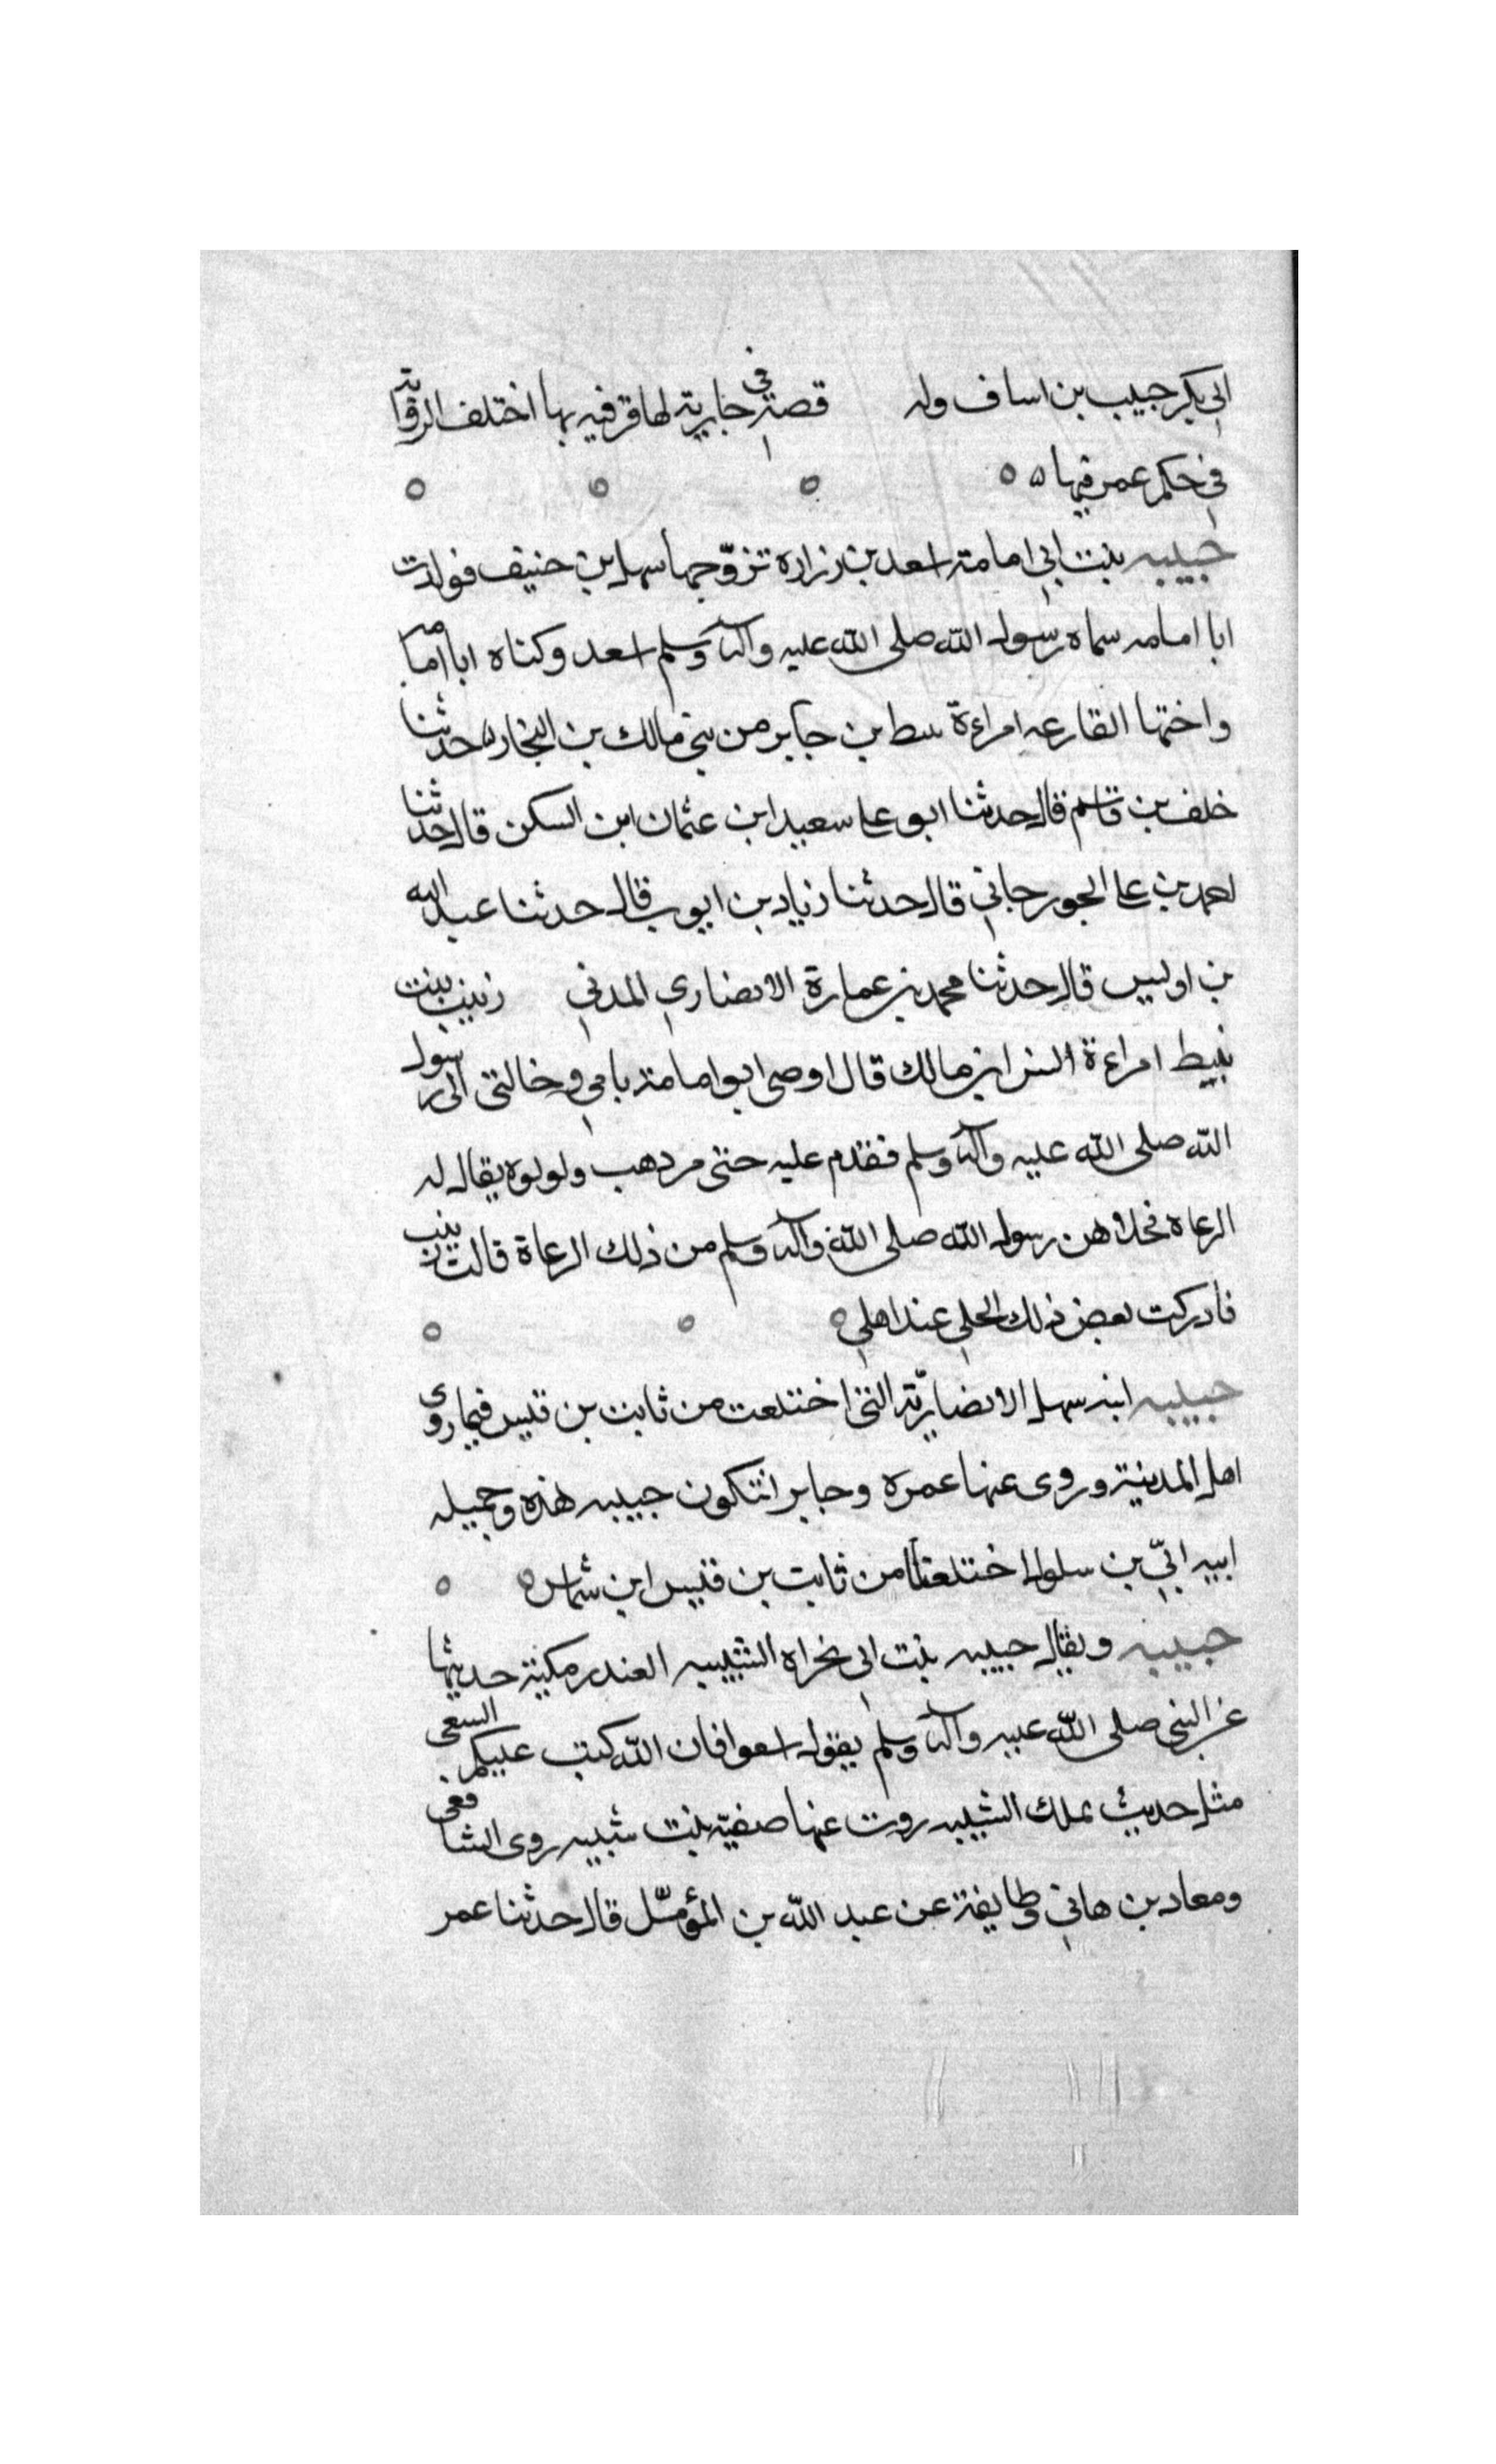 ابي بكر حبيب بن اساف وله قصة في جارية لها قرفيه بها اختلف الرواية
في حكم عمر فيها
حبيبه بنت ابي امامة اسعد بن زرارة تزوّجها سهل بن حنيف فولدت
ابا امامه سماه رسول الله صلى الله عليه وآله وسلم اسعد وكناه ابا امامه
واختها الفارعه امراءة نبيط بن جابر من بني مالك بن النجار حدثنا
خلف بن قاسم قال حدثنا ابو علي سعيد ابن عثمان ابن السكن قال حدثنا
احمد بن علي الجورجاني قال حدثنا زياد بن ايوب قال حدثنا عبد الله
بن اوليس قال حدثنا محمد بن عمارة الانصاري المدني زينب بنت
نبيط امراءة انس ابن مالك قال اوصى ابو امامة بامي وخالتي الى رسول
الله صلى الله عليه وآله وسلم فقدم عليه حتى مر دهب ولولوه يقال له
الرعاه نحلاهن رسول الله صلى الله وآله وسلم من ذلك الرعاة قالت زينب
فادركت بعض ذلك الحلي عند اهلي
حبيبه ابنه سهل الانصاريّة التي اختلعت من ثابت بن قيس فيما روى
اهل المدينة وروى عنها عمره وجايز ان تكون حبيبه هذه وجميله
ابيه ابيّ بن سلول اختلعتا من ثابت بن قيس ابن شماس
حبيبه ويقال حبيبه بنت ابي نجراه الشيبيه العندر مكية حديثها
عن النبي صلى الله عليه وآله وسلم يقول اسعوا فان الله كتب عليكم السعي
مثل حديث تملك الشيبيه روت عنها صفيّة بنت شيبه روى الشافعي
ومعاد بن هاني وطايفة عن عبد الله بن المؤمّل قال حدثنا عمر